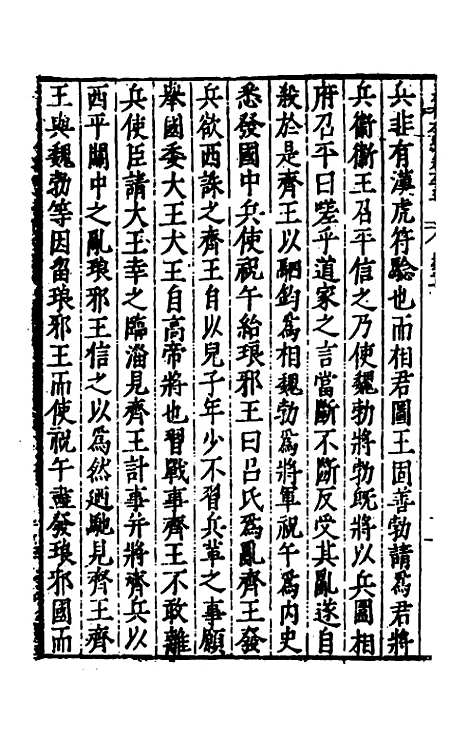 兵非有漢虎符驗也而相君圍王固善勃請爲君將
兵衛衛王召平信之乃使魏勃將勃旣將以兵圍相
府召平曰嗟乎道家之言當斷不斷反受其亂遂自
殺於是齊王以駟鈞爲相魏勃爲將軍祝午爲內史
悉發國中兵使祝午紿琅邪王曰呂氏爲亂齊王發
兵欲西誅之齊王自以兒子年少不習兵革之事願
舉國委大王大王自高帝將也習戰事齊王不敢離
兵使臣請大王幸之臨淄見齊王計事并將齊兵以
西平關中之亂琅邪王信之以爲然迺馳見齊王齊
王與魏勃等因留琅邪王而使祝午盡發琅邪國而